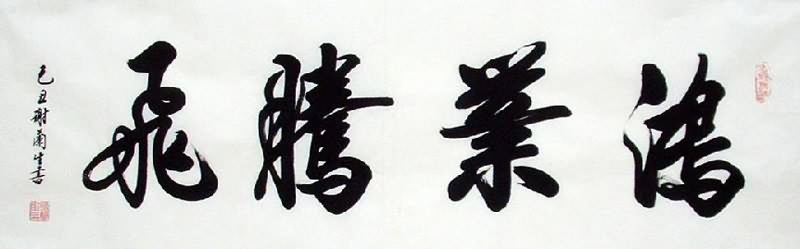 鴻業騰飛
己丑謝蘭生書